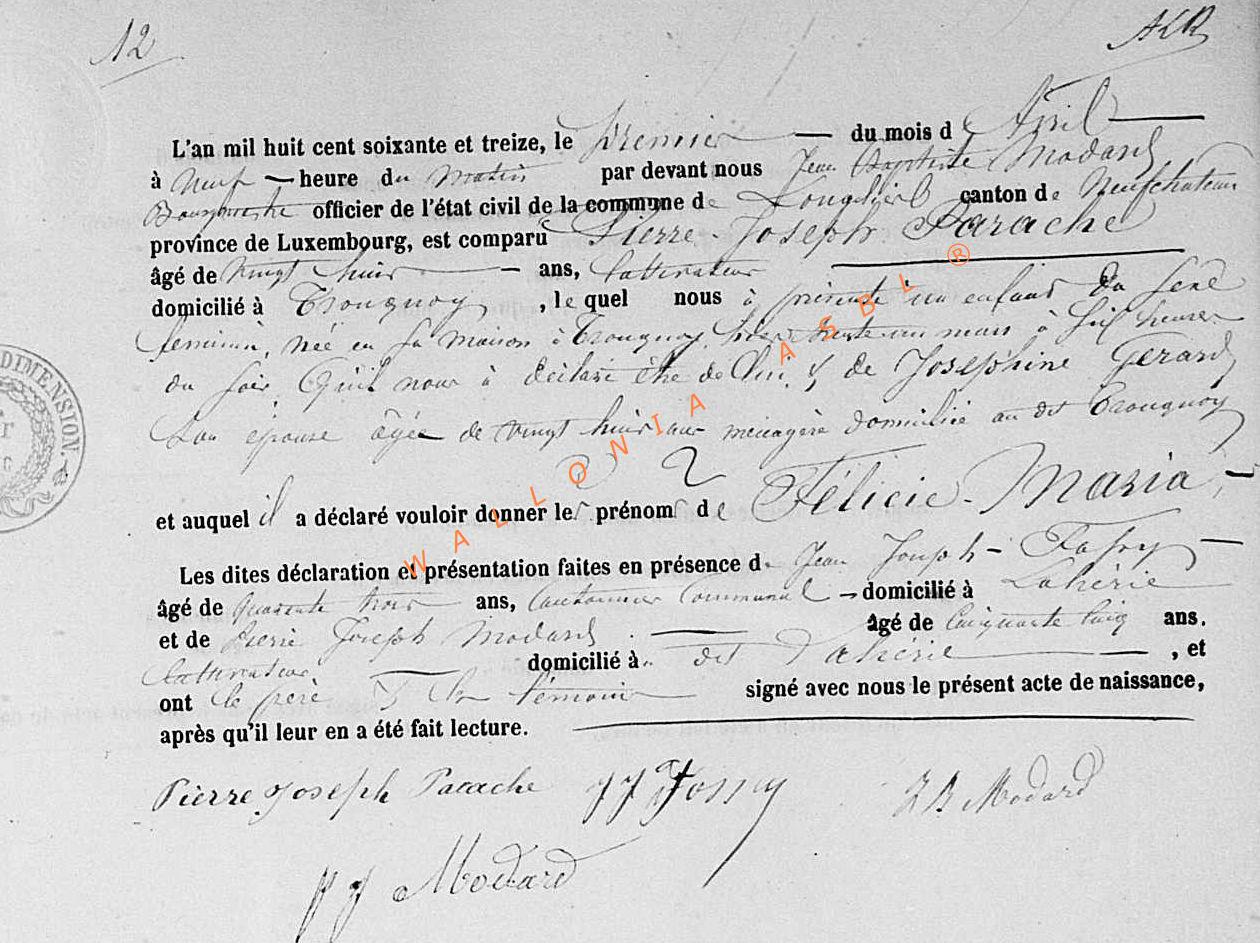 12
AKR
L'an mil huit cent soixante et treize, le Premier du mois d Avril
à Neuf heure du matin par devant nous Jean Baptiste Modard
Bourgmestre officier de l'état civil de la commune de Longlier canton de Neufchateau
province de Luxembourg, est comparu Pierre-Joseph Parache
âgé de vingt huit ans, Cultivateur
domicilié à Tronquoy, lequel nous à présenté un enfant du sexe
feminin, née en sa maison à Tronquoy, hier trente un mars à huit heures
du soir, Qu'il nous à déclaré être de lui, & de Josephine Gerard
son épouse âgée de vingt huit ans ménagère domicilié au dit Tronquoy
2
et auquel il a déclaré vouloir donner les prénoms de Félicie-Maria,
Les dites déclaration et présentation faites en présence d. Jean Joseph
âgé de quarante trois ans, Cantonnier Communal domicilié à Lahérie
et de Pierre Joseph Modard âgé de Cinquante Cinq ans.
Cultivateur domicilié à dit Lahérie, et
ont le père & les témoins signé avec nous le présent acte de naissance,
après qu'il leur en a été fait lecture.
Pierre Joseph Parache
JJ Fossy
J B Modard
pj Modard
DIMENSION.
WALLONIA ASBL ®